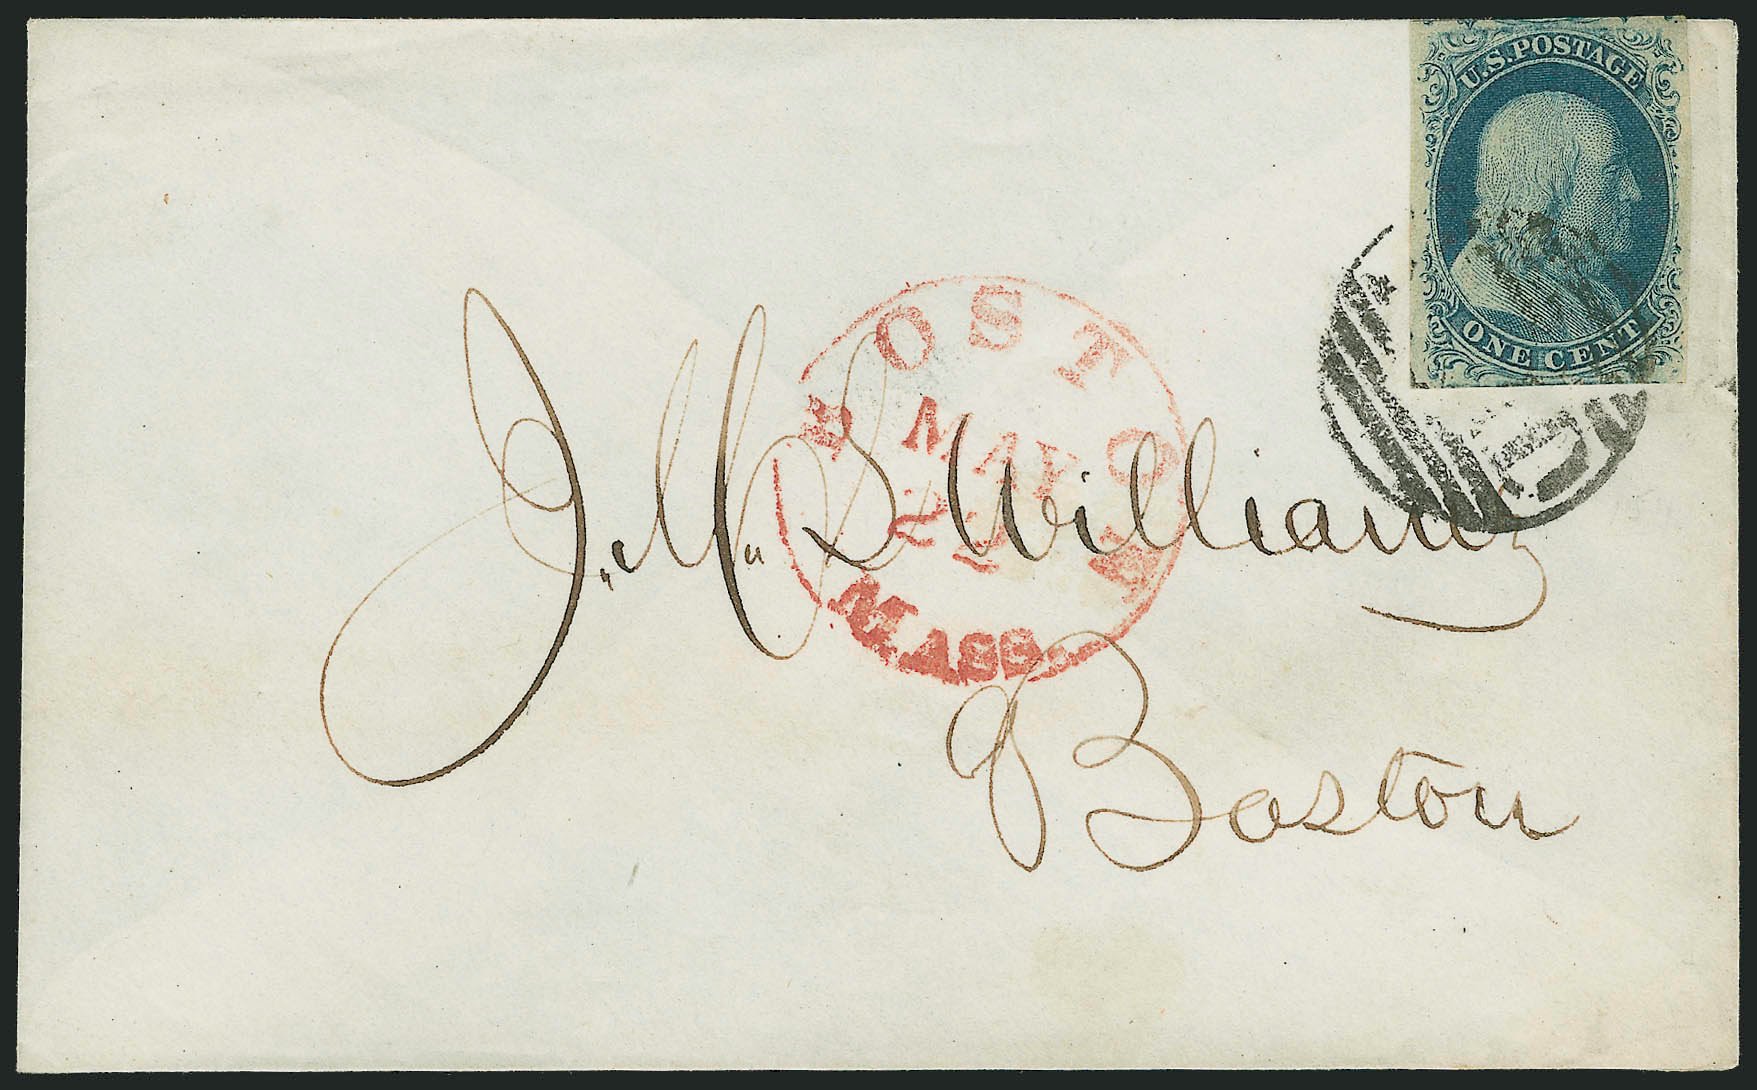 U.S. POSTAGE
ONE CENT
BOSTON
MAY
22
MASS.
J. M. S. Williams
Boston